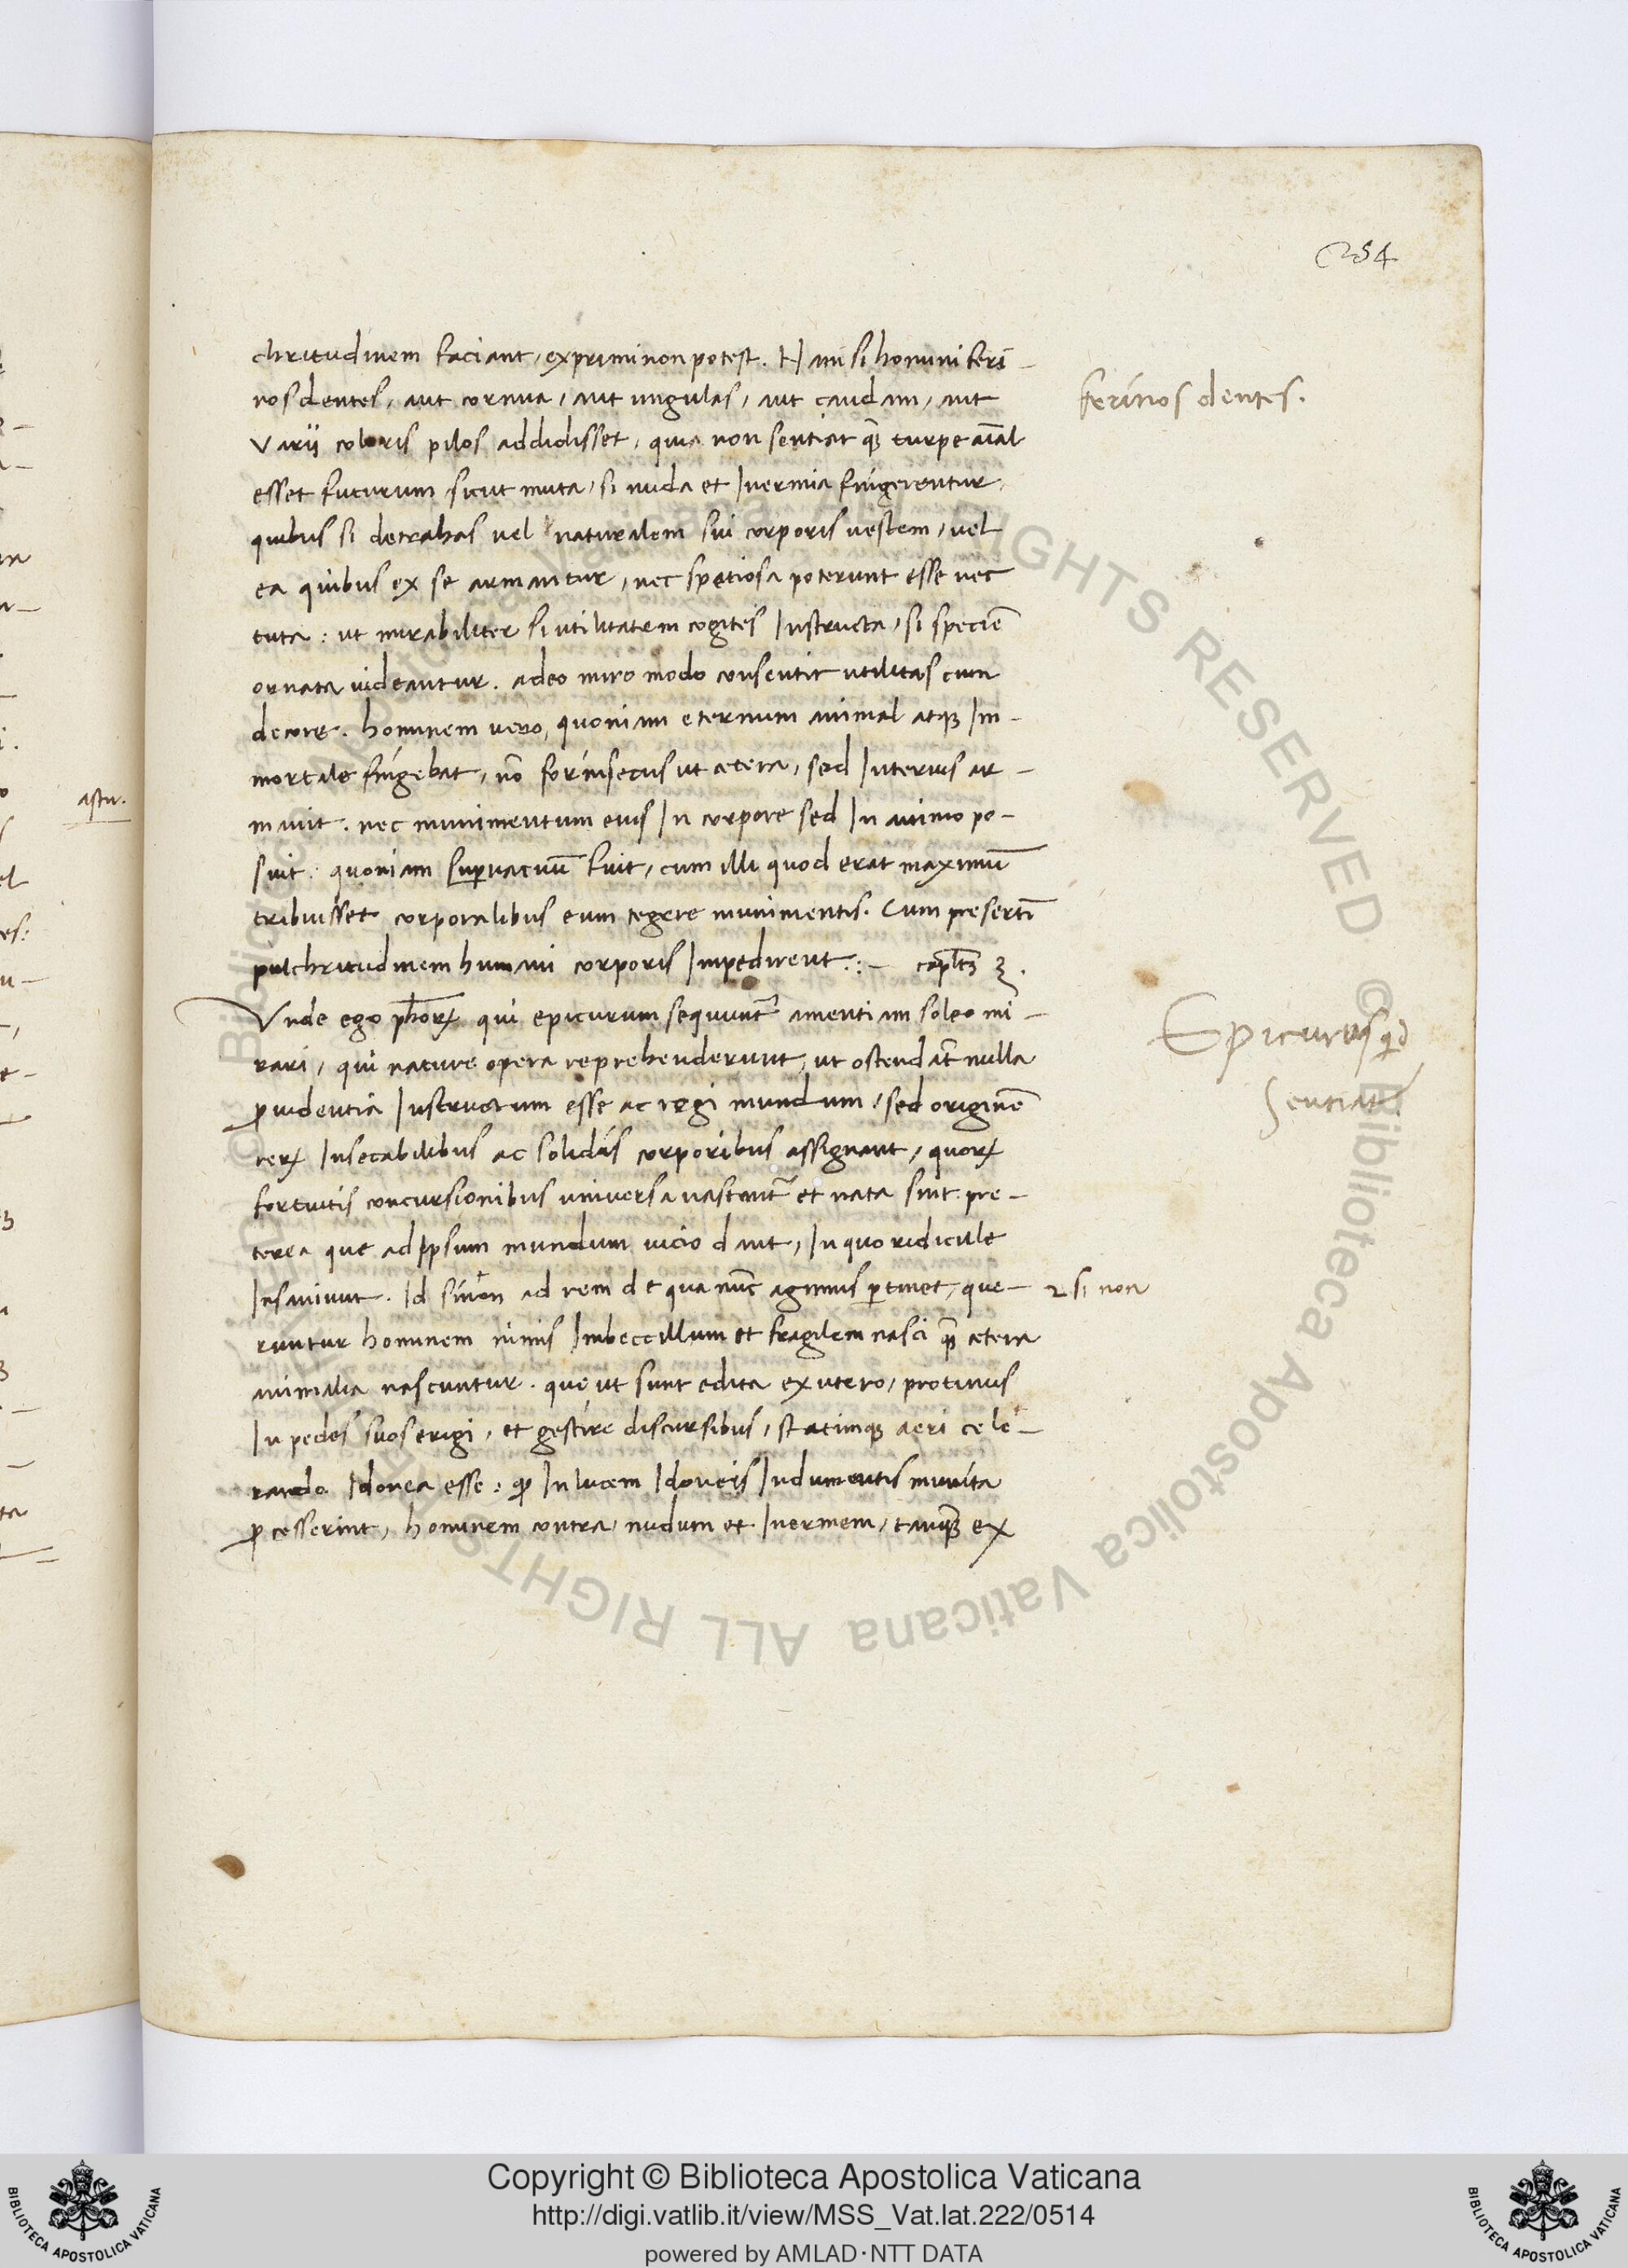 254
chritudinem faciant, exprimi non potest. Nam si homini feri-
nos dentes, aut cornua, aut ungulas, aut caudam, aut
varii coloris pilos addidisset, quis non sentiat q̃ turpe aĩal
esset futurum, sicut muta, si nuda et Inermia fingerentur,
quibus si detrahas vel naturalem sui corporis vestem, vel
ea quibus ex se armantur, nec spetiosa poterunt esse nec
tuta: ut mirabiliter si utilitatem cogites Instructa, si speciē
ornata videantur. adeo miro modo consentit utilitas cum
decore. hominem vero, quoniam eternum animal atq; Im-
mortale fingebat, nō forinsecus ut cetera, sed Interius ar-
mavit. nec munimentum eius In corpore sed In animo po-
suit. quoniam supervacuū fuit, cum illi quod erat maximū
tribuisset corporalibus eum tegere munimentis. Cum presertī
pulchritudinem humani corporis Impedirent:- capl'm 3.
Vnde ego ph̃oꝝ qui epicurum sequunt̃ amentiam soleo mi-
rari, qui nature opera reprehenderunt, ut ostendãt nulla
ꝓvidentia Instructum esse ac regi mundum, sed originē
reꝝ Insecabilibus ac solidis corporibus assignant, quoꝝ
fortuitis concursionibus universa nascant̃ et nata sint. pre-
terea que ad Ipsum mundum vicio dant, In quo ridicule
Insaniunt. Id sumon ad rem de qua nũc agimus ꝑtinet, que-
runtur hominem nimis Imbeccillum et fragilem nasci q̃ cetera
animalia nascuntur. que ut sunt edita ex utero, protinus
In pedes suos erigi, et gestire discursibus, statimq; aeri cele-
rando Idonea esse: qꝫ In lucem Idoneis Indumentis munita
ꝓcesserint, hominem contra, nudum et Inermem, tanq̃ ex
ferinos dentes.
Epicurus qd
Sentiat.
si non
astu.
© Biblioteca Apostolica Vaticana ALL RIGHTS RESERVED © Biblioteca Apostolica Vaticana ALL RIGHTS RESERVED
Copyright © Biblioteca Apostolica Vaticana
http://digi.vatlib.it/view/MSS_Vat.lat.222/0514
powered by AMLAD·NTT DATA
BIBLIOTECA APOSTOLICA VATICANA
BIBLIOTECA APOSTOLICA VATICANA